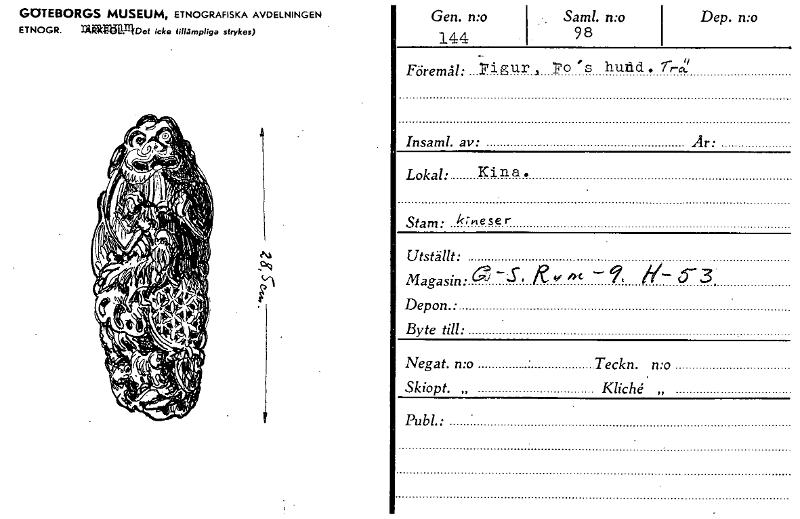 GÖTEBORGS MUSEUM, ETNOGRAFISKA AVDELNINGEN
ETNOGR. ARKEOL. (Det icke tillämpliga strykes)
28,5cm.
Gen. n:o Saml. n:o Dep. n:o
144 98
Föremål: Figur, Fo´s hund. Trä
Insaml. av: År:
Lokal: Kina.
Stam: kineser
Utställt:
Magasin: G-S. Rum-9. H-53.
Depon.:
Byte till:
Negat. n:o Teckn. n:o
Skiopt. „ Kliché „
Publ.: